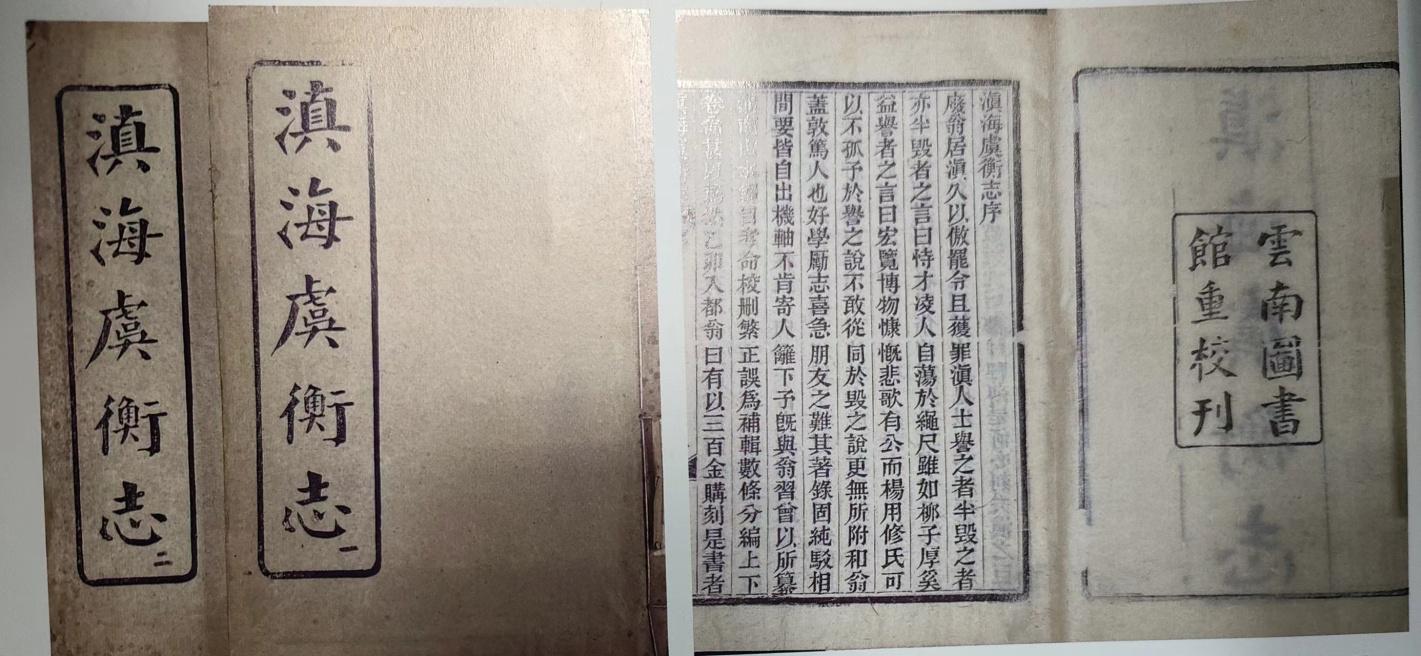 滇海虞衡志二
滇海虞衡志一
雲南圖書
館重校刊
滇海虞衡志序
廢翁居滇久以傲罷令且獲罪滇人士譽之者半毀之者
亦半毀者之言曰恃才凌人自蕩於繩尺雖如柳子厚奚
益譽者之言曰宏覽博物慷慨悲歌有公而楊用修氏可
以不孤予於譽之說不敢從同於毀之說更無所附和翁
蓋敦篤人也好學勵志喜急朋友之難其著錄固純駁相
間要皆自出機軸不肯寄人籬下予旣與翁習曾以所纂
命校刪繁正誤爲補輯數條分編上下
乙卯入都翁曰有以三百金購刻是書者